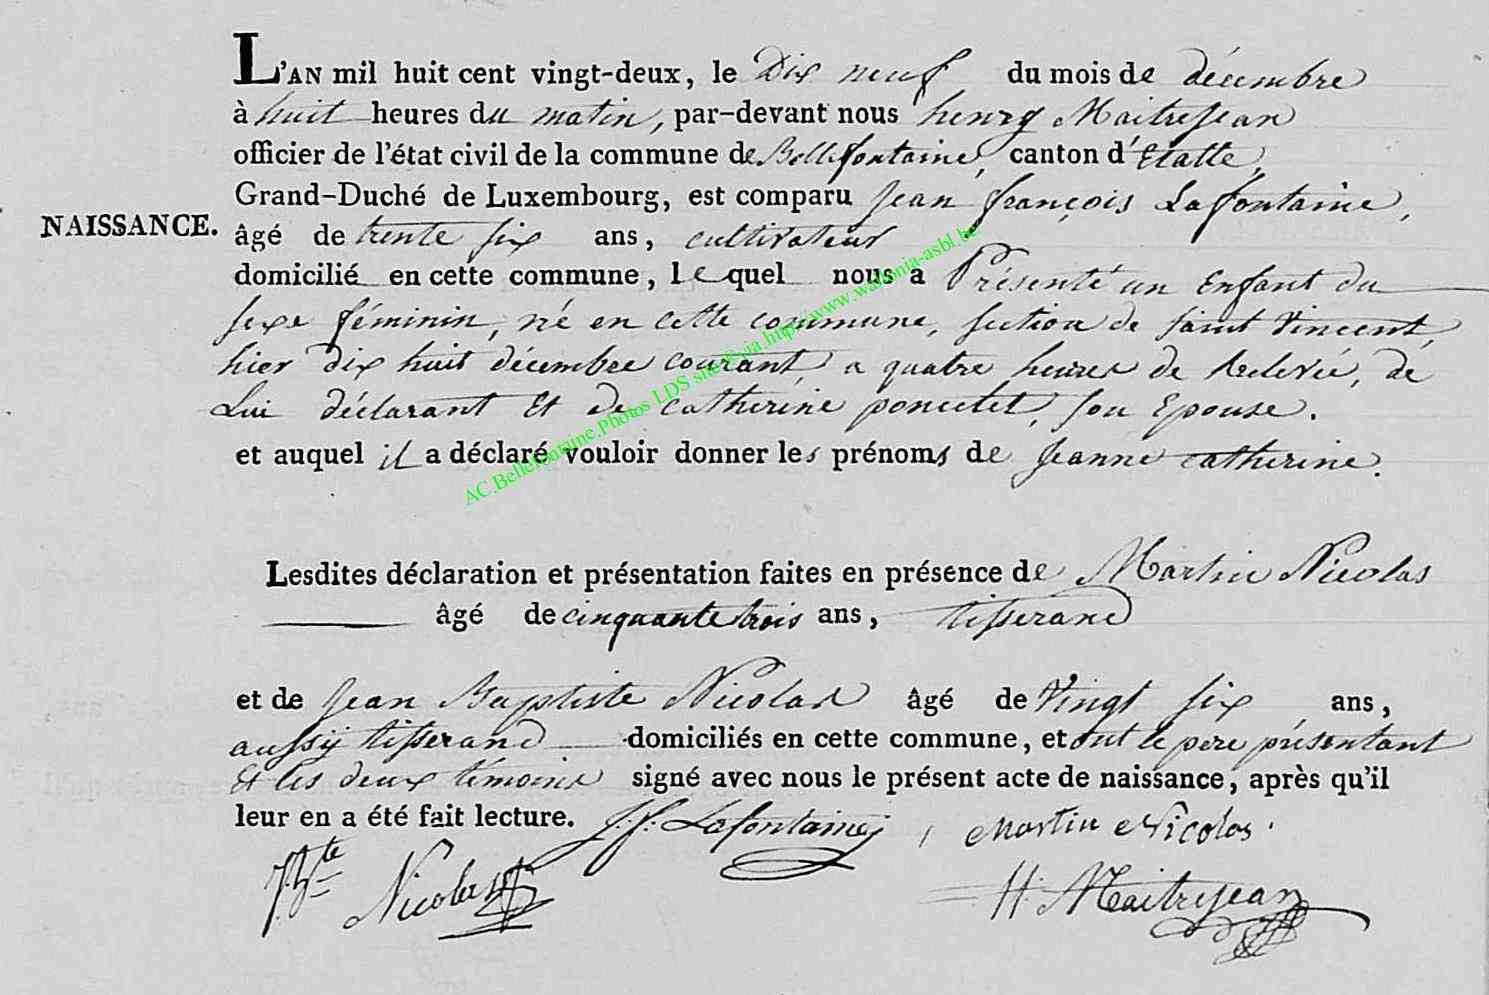 L'AN mil huit cent vingt-deux, le Dix neuf du mois de décembre
à huit heures du matin, par-devant nous henry Maitrejean
officier de l'état civil de la commune de Bellefontaine, canton d'Etalle,
Grand-Duché de Luxembourg, est comparu jean françois Lafontaine,
NAISSANCE. âgé de trente six ans, cultivateur
domicilié en cette commune, lequel nous a Présenté un Enfant du
sexe féminin, né en cette commune, section de saint Vincent,
hier dix huit décembre courant, a quatre heures de Relevée, de
Lui déclarant Et de catherine poncelet, son Epouse.
et auquel il a déclaré vouloir donner les prénoms de jeanne catherine.
Lesdites déclaration et présentation faites en présence de Martin Nicolas
âgé de cinquante trois ans, tisserand
et de jean Baptiste Nicolas âgé de Vingt six ans,
aussy tisserand domiciliés en cette commune, et ont le pere présentant
Et les deux témoins signé avec nous le présent acte de naissance, après qu'il
leur en a été fait lecture. J. f. Lafontaine, Martin Nicolas.
J. Bte Nicolas H. Maitrejean
AC.Bellefontaine.Photos LDS site@pia.http://www.wallonia-asbl.be